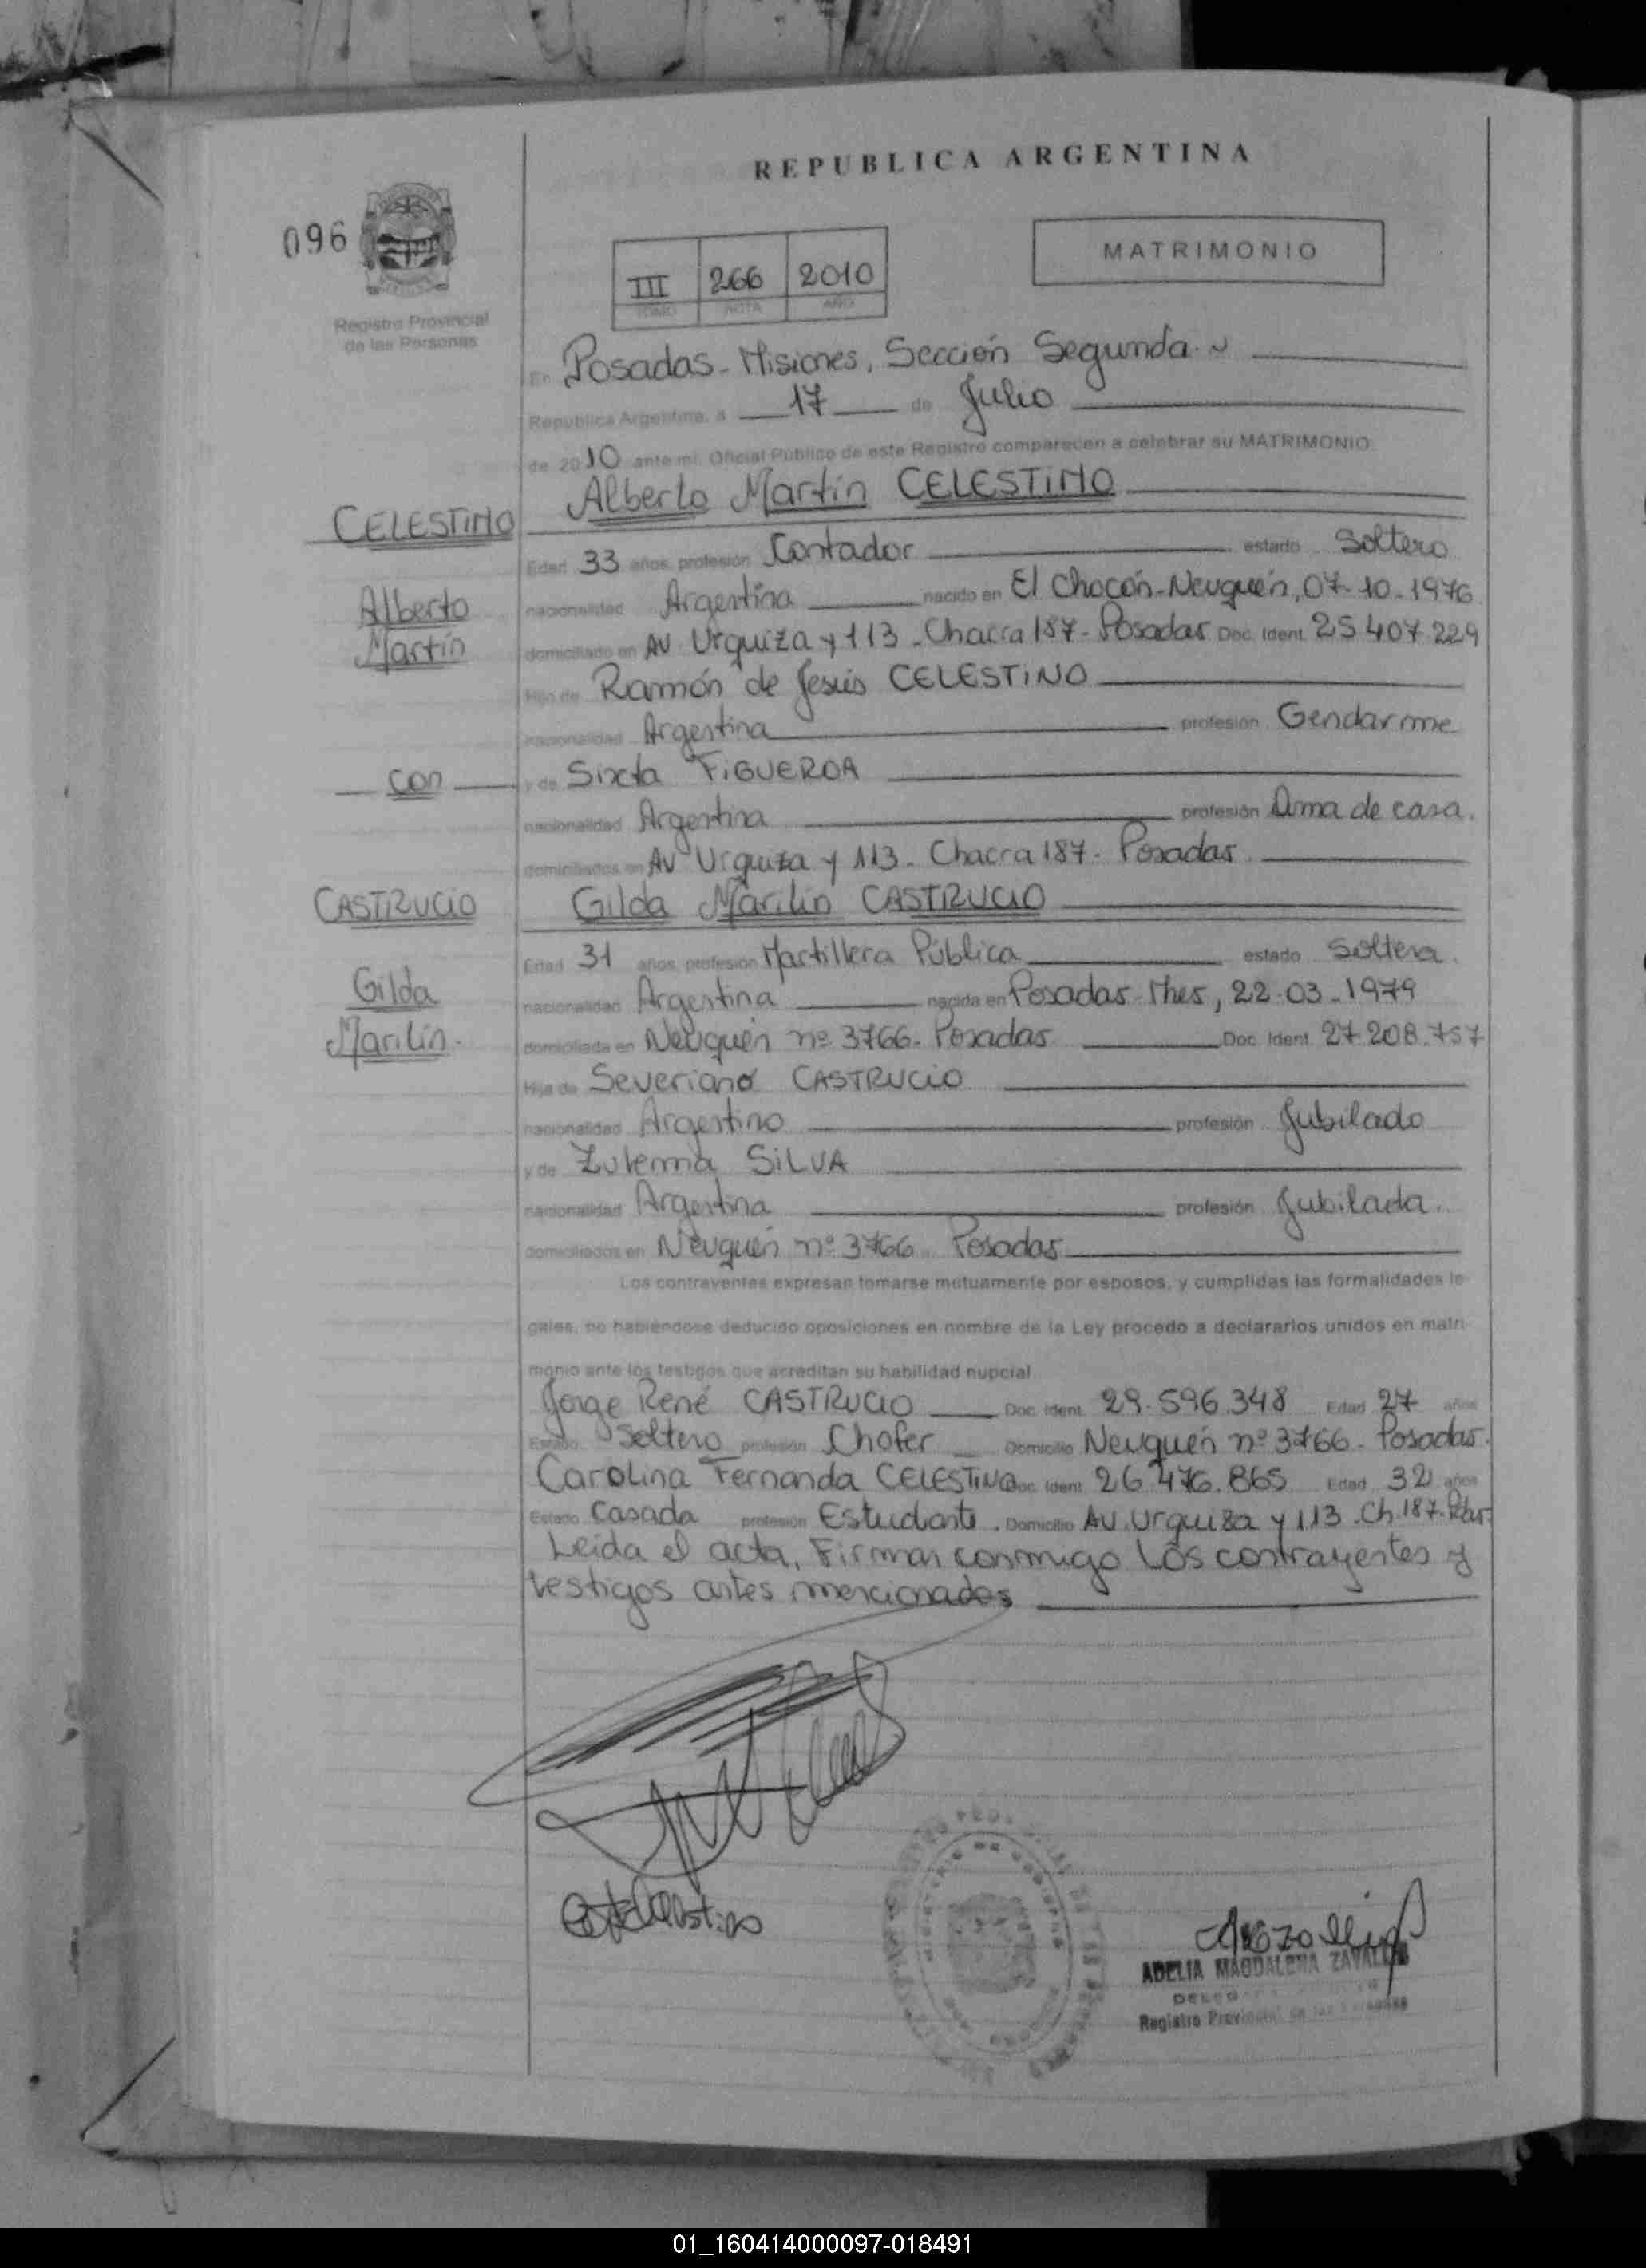 REPUBLICA ARGENTINA
096
MATRIMONIO
III 266 2010
TOMO NOTA AÑO
Registro Provincial
de las Personas
En Posadas - Misiones, Sección Segunda
Republica Argentina, a 17 de Julio
de 2010 ante mi, Oficial Público de este Registro comparecen a celebrar su MATRIMONIO
Alberto Martín CELESTINO
CELESTINO
Edad 33 años, profesión Contador estado Soltero
Alberto
nacionalidad Argentina nacido en El Chocón - Neuquén, 07-10-1976
Martín
domiciliado en AV Urquiza y 113 - Chacra 187 - Posadas Doc. Ident. 25.407.229
Hijo de Ramón de Jesús CELESTINO
nacionalidad Argentina profesión Gendarme
con
y de Sixta FIGUEROA
nacionalidad Argentina profesión Ama de casa.
domiciliados en AV Urquiza y 113 - Chacra 187 - Posadas
CASTRUCIO
Gilda Marilin CASTRUCIO
Edad 31 años, profesión Martillera Pública estado Soltera.
Gilda
nacionalidad Argentina nacida en Posadas - Mnes, 22-03-1979
Marilín.
domiciliada en Neuquén nº 3766 - Posadas Doc. Ident. 27.208.757
Hija de Severiano CASTRUCIO
nacionalidad Argentino profesión Jubilado
y de Zulema SILVA
nacionalidad Argentina profesión Jubilada.
domiciliados en Neuquén nº 3766 Posadas
Los contrayentes expresan tomarse mutuamente por esposos, y cumplidas las formalidades le-
gales, no habiéndose deducido oposiciones en nombre de la Ley procedo a declararlos unidos en matri-
monio ante los testigos que acreditan su habilidad nupcial
Jorge René CASTRUCIO Doc. Ident. 29.596.348 Edad 27 años
Estado Soltero profesión Chofer Domicilio Neuquén nº 3766 - Posadas.
Carolina Fernanda CELESTINO Doc. Ident. 26.476.865 Edad 32 años
Estado Casada profesión Estudiante. Domicilio AV. Urquiza y 113 - Ch. 187. Pdas.
Leida el acta, Firman conmigo los contrayentes y
testigos antes mencionados
ADELIA MAGDALENA
Registro Provincial de las Personas
01_160414000097-018491